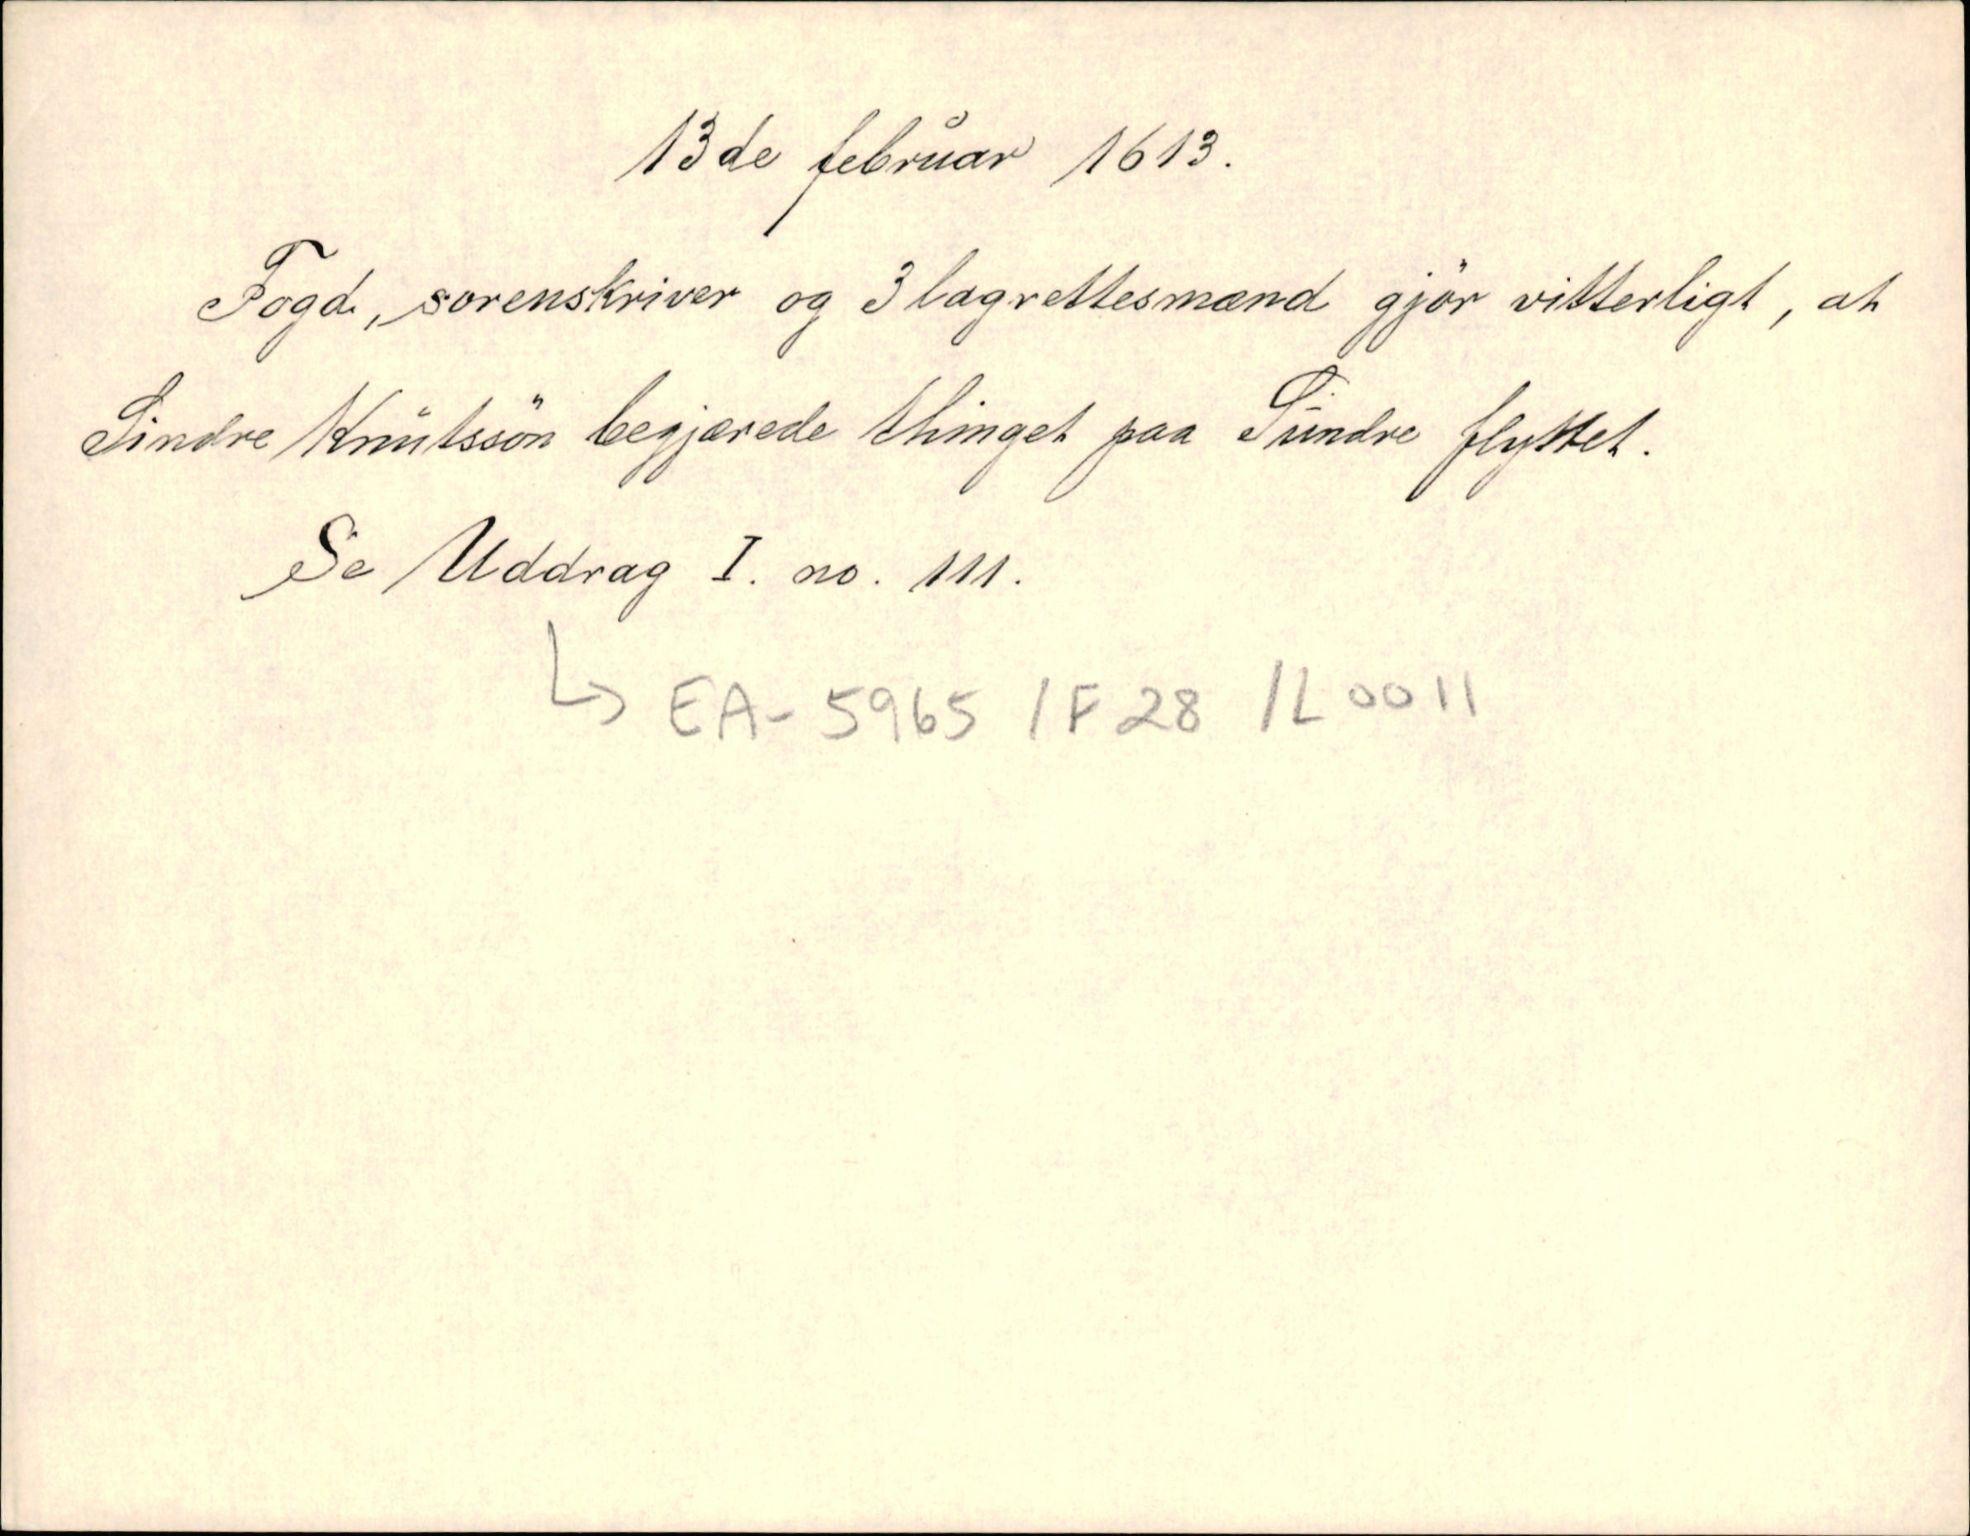 13de februar 1613.
Fogd, sorenskriver og 3 lagrettesmænd gjör vitterligt, at
Sindre Knutssön begjærede thinget paa Sundre flyttet.
Se Uddrag I. no. 111.
↳ EA-5965 / F28 / L0011